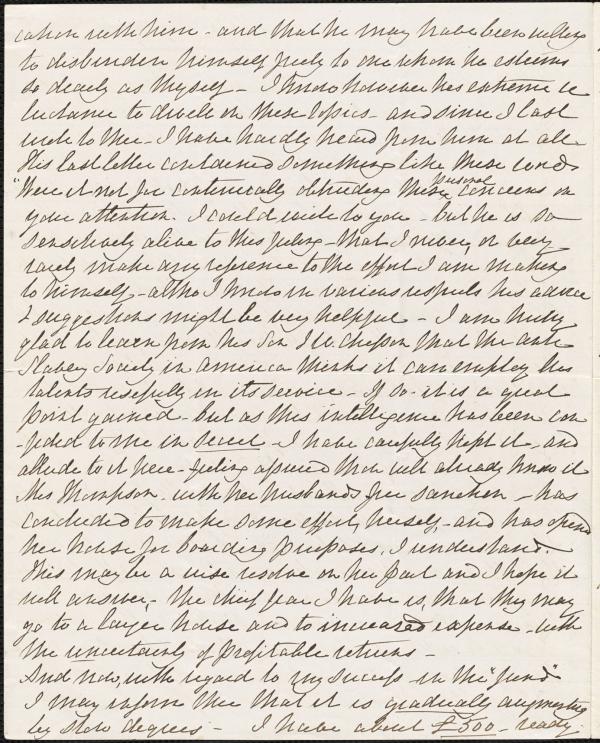 cation with him - and that he may have been willing
to disburden himself freely to one whom he esteems
so dearly as thyself - I know however his extreme re
luctance to dwell on these topics - and since I last
wrote to thee - I have hardly heard from him at all.
His last letter contained something like these words
"Were it not for continually obtruding these personal concerns on
your attention. I could write to you - but he is so
sensitively alive to this feeling - that I never, or very
rarely make any reference to the effort I am making
to himself - altho I know in various respects his advice
& suggestions might be very helpful - I am truly
glad to learn from his Son I W chesson that the anti
Slavery Society in america thinks it can employ his
talents usefully in its service - If so - it is a great
point gained - but as this intelligence has been con
-fided to me in secret - I have carefully kept it, and
allude to it here - feeling assured thou wilt already know it
Mrs Thompson. with her husbands free sanction - has
concluded to make some effort, herself, - and has opened
her house for boarding purposes, I understand.
This may be a wise resolve on her part and I hope it
will answer, - the chief fear I have is, that they may
go to a larger house and to increased expense - with
the uncertainty of profitable returns -
And now, with regard to my success - in the "fund"
I may inform thee that it is gradually augmenting
by slow degrees - I have about £500 - ready